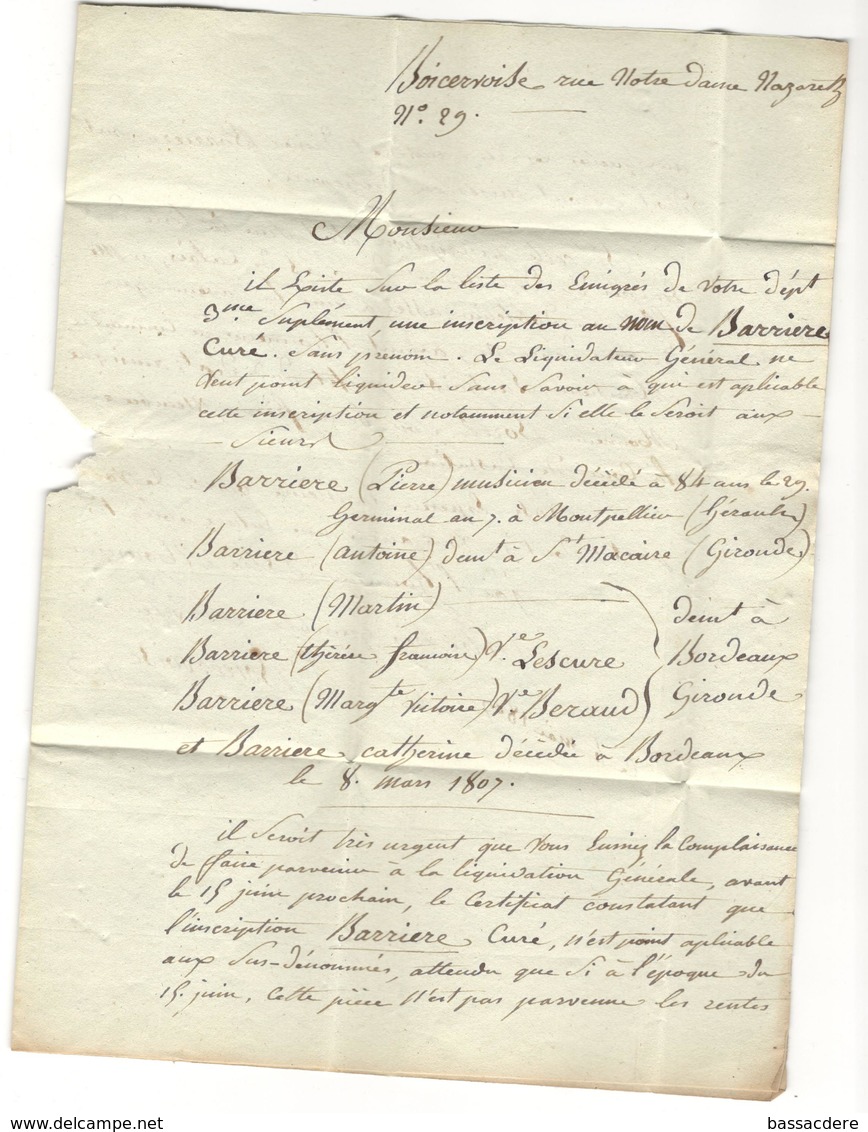 Boicervoise rue Notre dame Nazareth
N° 29.
Monsieur
il Existe Sur la liste des Emigrés de votre dépt
3me Suplément, une inscription au nom de Barriere
Curé. Sans prenom. Le Liquidateur Général ne
veut point liquider Sans Savoir à qui est aplicable
cette inscription et notamment Si elle le Seroit aux
Sieurs
Barriere (Pierre) musicien décédé à 84 ans le 29.
Germinal an 7. à Montpellier (hérault)
Barriere (antoine) demt à St Macaire (Gironde)
Barriere (Martin)
Barriere (thérèse francoise) Ve Lescure
Barriere (Margte Victoire) Ve Beraud
demt à
Bordeaux
Gironde
et Barriere catherine décédée à Bordeaux
le 8. mars 1807.
il Seroit très urgent que vous Eussiez la Complaisance
de faire parvenir à la liquidation Générale, avant
le 15 juin prochain, le Certificat constatant que
l'inscription Barriere Curé, n'est point aplicable
aux Sus-dénommés, attendu que Si à l'époque du
15. juin, Cette pièce n'est pas parvenue les rentes
www.delcampe.net
bassacdere